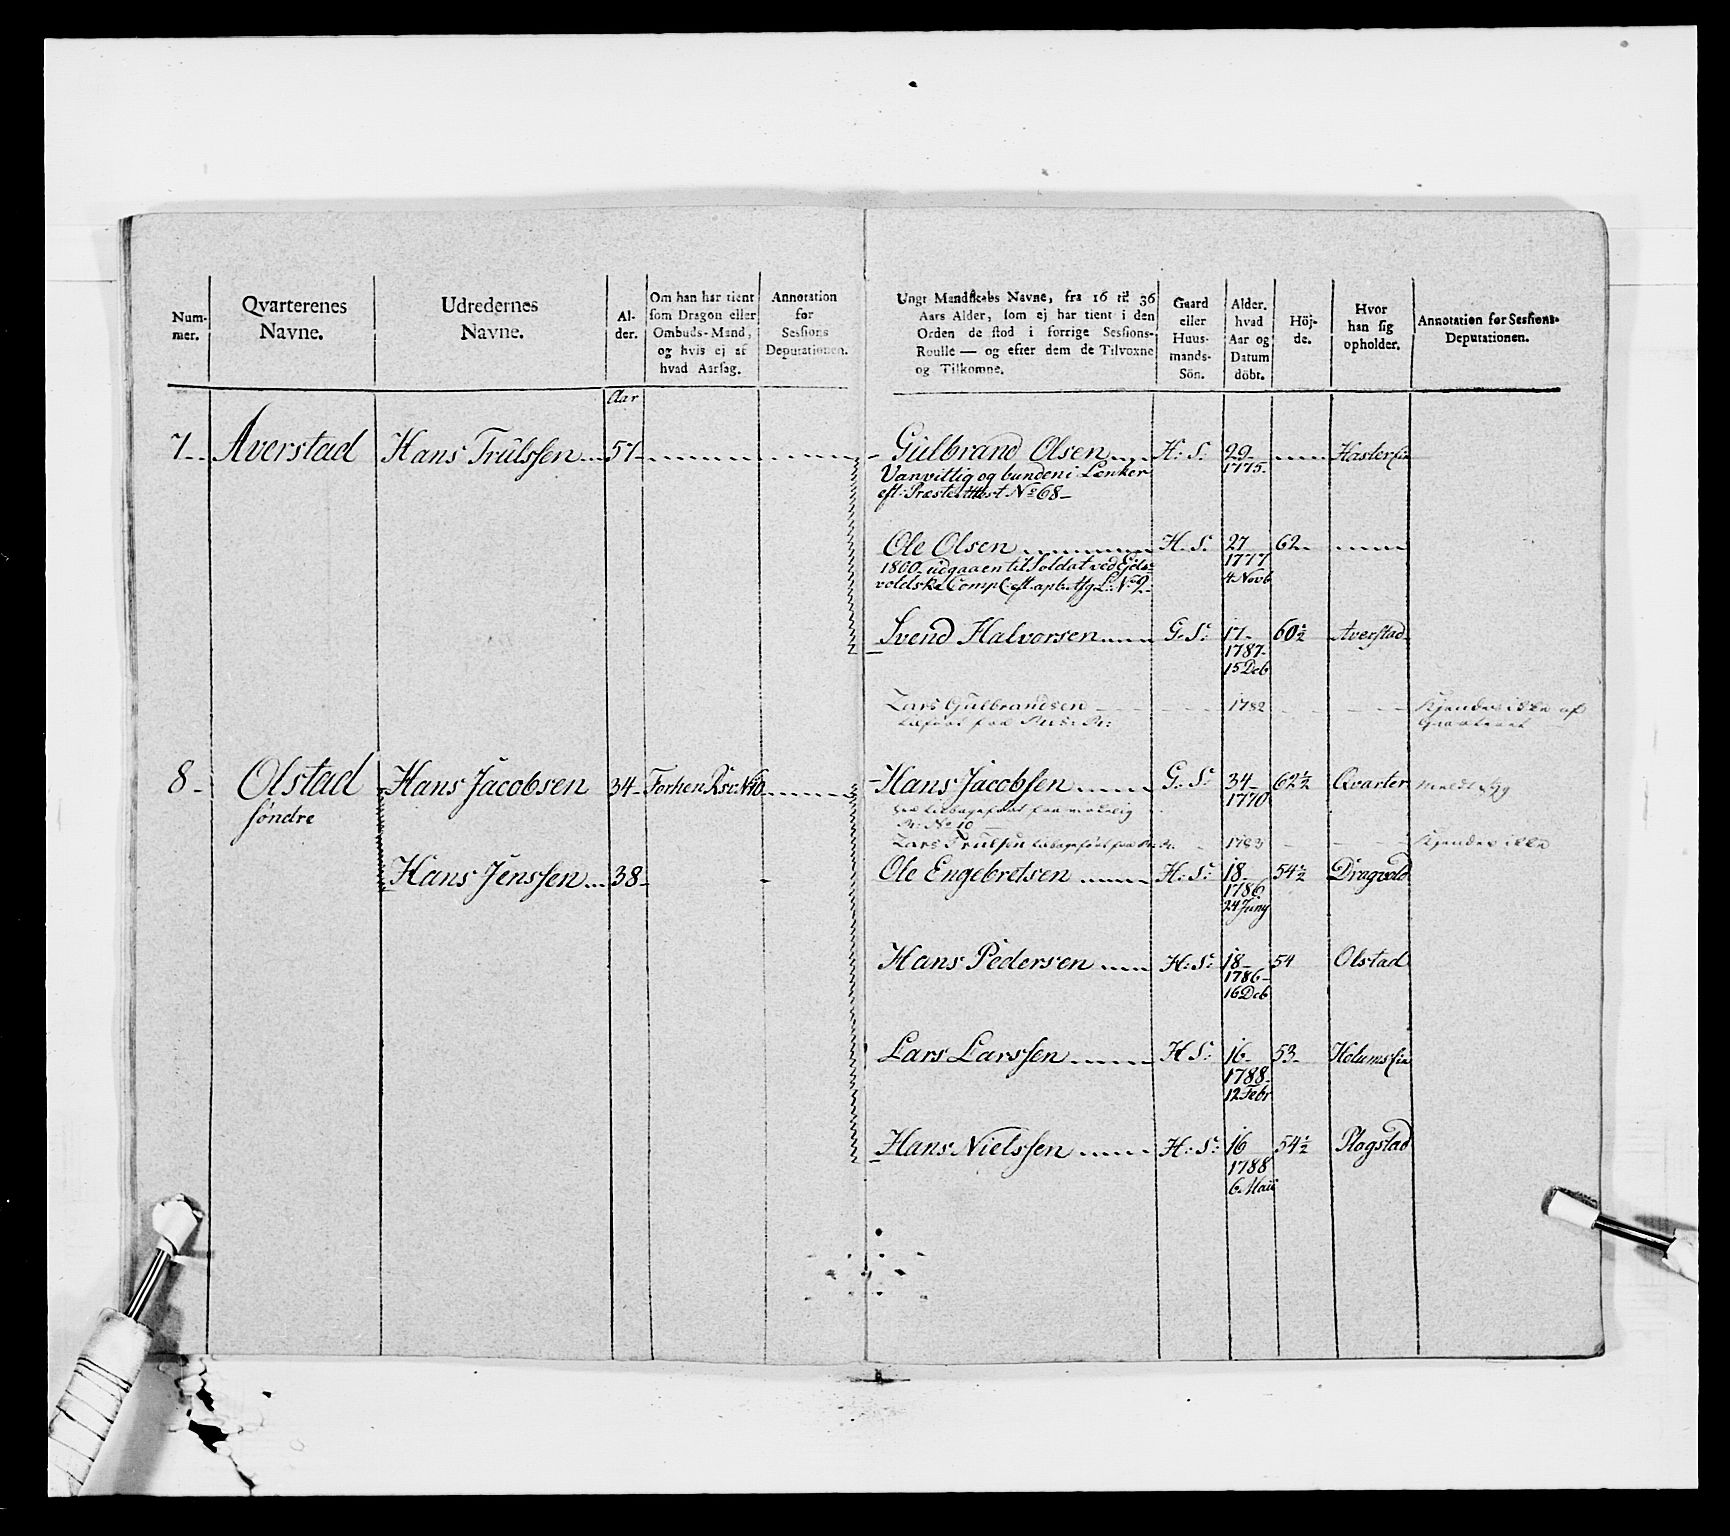 Num-
mer.
Qvarterenes
Navne.
Udredernes
Navne.
Al-
der.
Om han har tient
som Dragon eller
Ombuds-Mand,
og hvis ej af
hvad Aarsag.
Annotation
for
Sessions
Deputationen.
Ungt Mandskabs Navne, fra 16 til 36
Aars Alder, som ej har tient i den
Orden de stod i forrige Sessions-
Roulle — og efter dem de Tilvoxne
og Tilkomne.
Gaard
eller
Huus-
mands-
Sön.
Alder.
hvad
Aar og
Datum
döbt.
Höj-
de.
Hvor
han sig
opholder.
Annotation for Sessions-
Deputationen.
Aar
7 Averstad Hans Trulssen 57 Gulbrand Olsen H: S: 29
1775
Vanvittig og bunden i Lænker
eft: Præste Attest No 68
Ole Olsen H. S: 27 62
1800 udgaaen til Soldat ved Eids- 1777
voldske Comp: 4 Novb
Svend Halvorsen G. S: 17 60½ Averstad
1787
15 Deb
Lars Gulbrandsen 1782 Kjendes ikke af
8 Olstad Hans Jacobsen 34 Forhen Hans Jacobsen G. S: 34 62½ Qvarter
söndre 1770
No 10
Lars Trulsen 1783 Kjendes ikke
Hans Jenssen 38 Ole Engebretsen H: S: 18 54½ Dragvold
1786
24 Juny
Hans Pedersen H: S: 18 54 Olstad
1786
16 Deb
Lars Larssen H S: 16 53
1788
12 Febr
Hans Nielssen H: S: 16 54½ Plogstad
1788
6 Maii